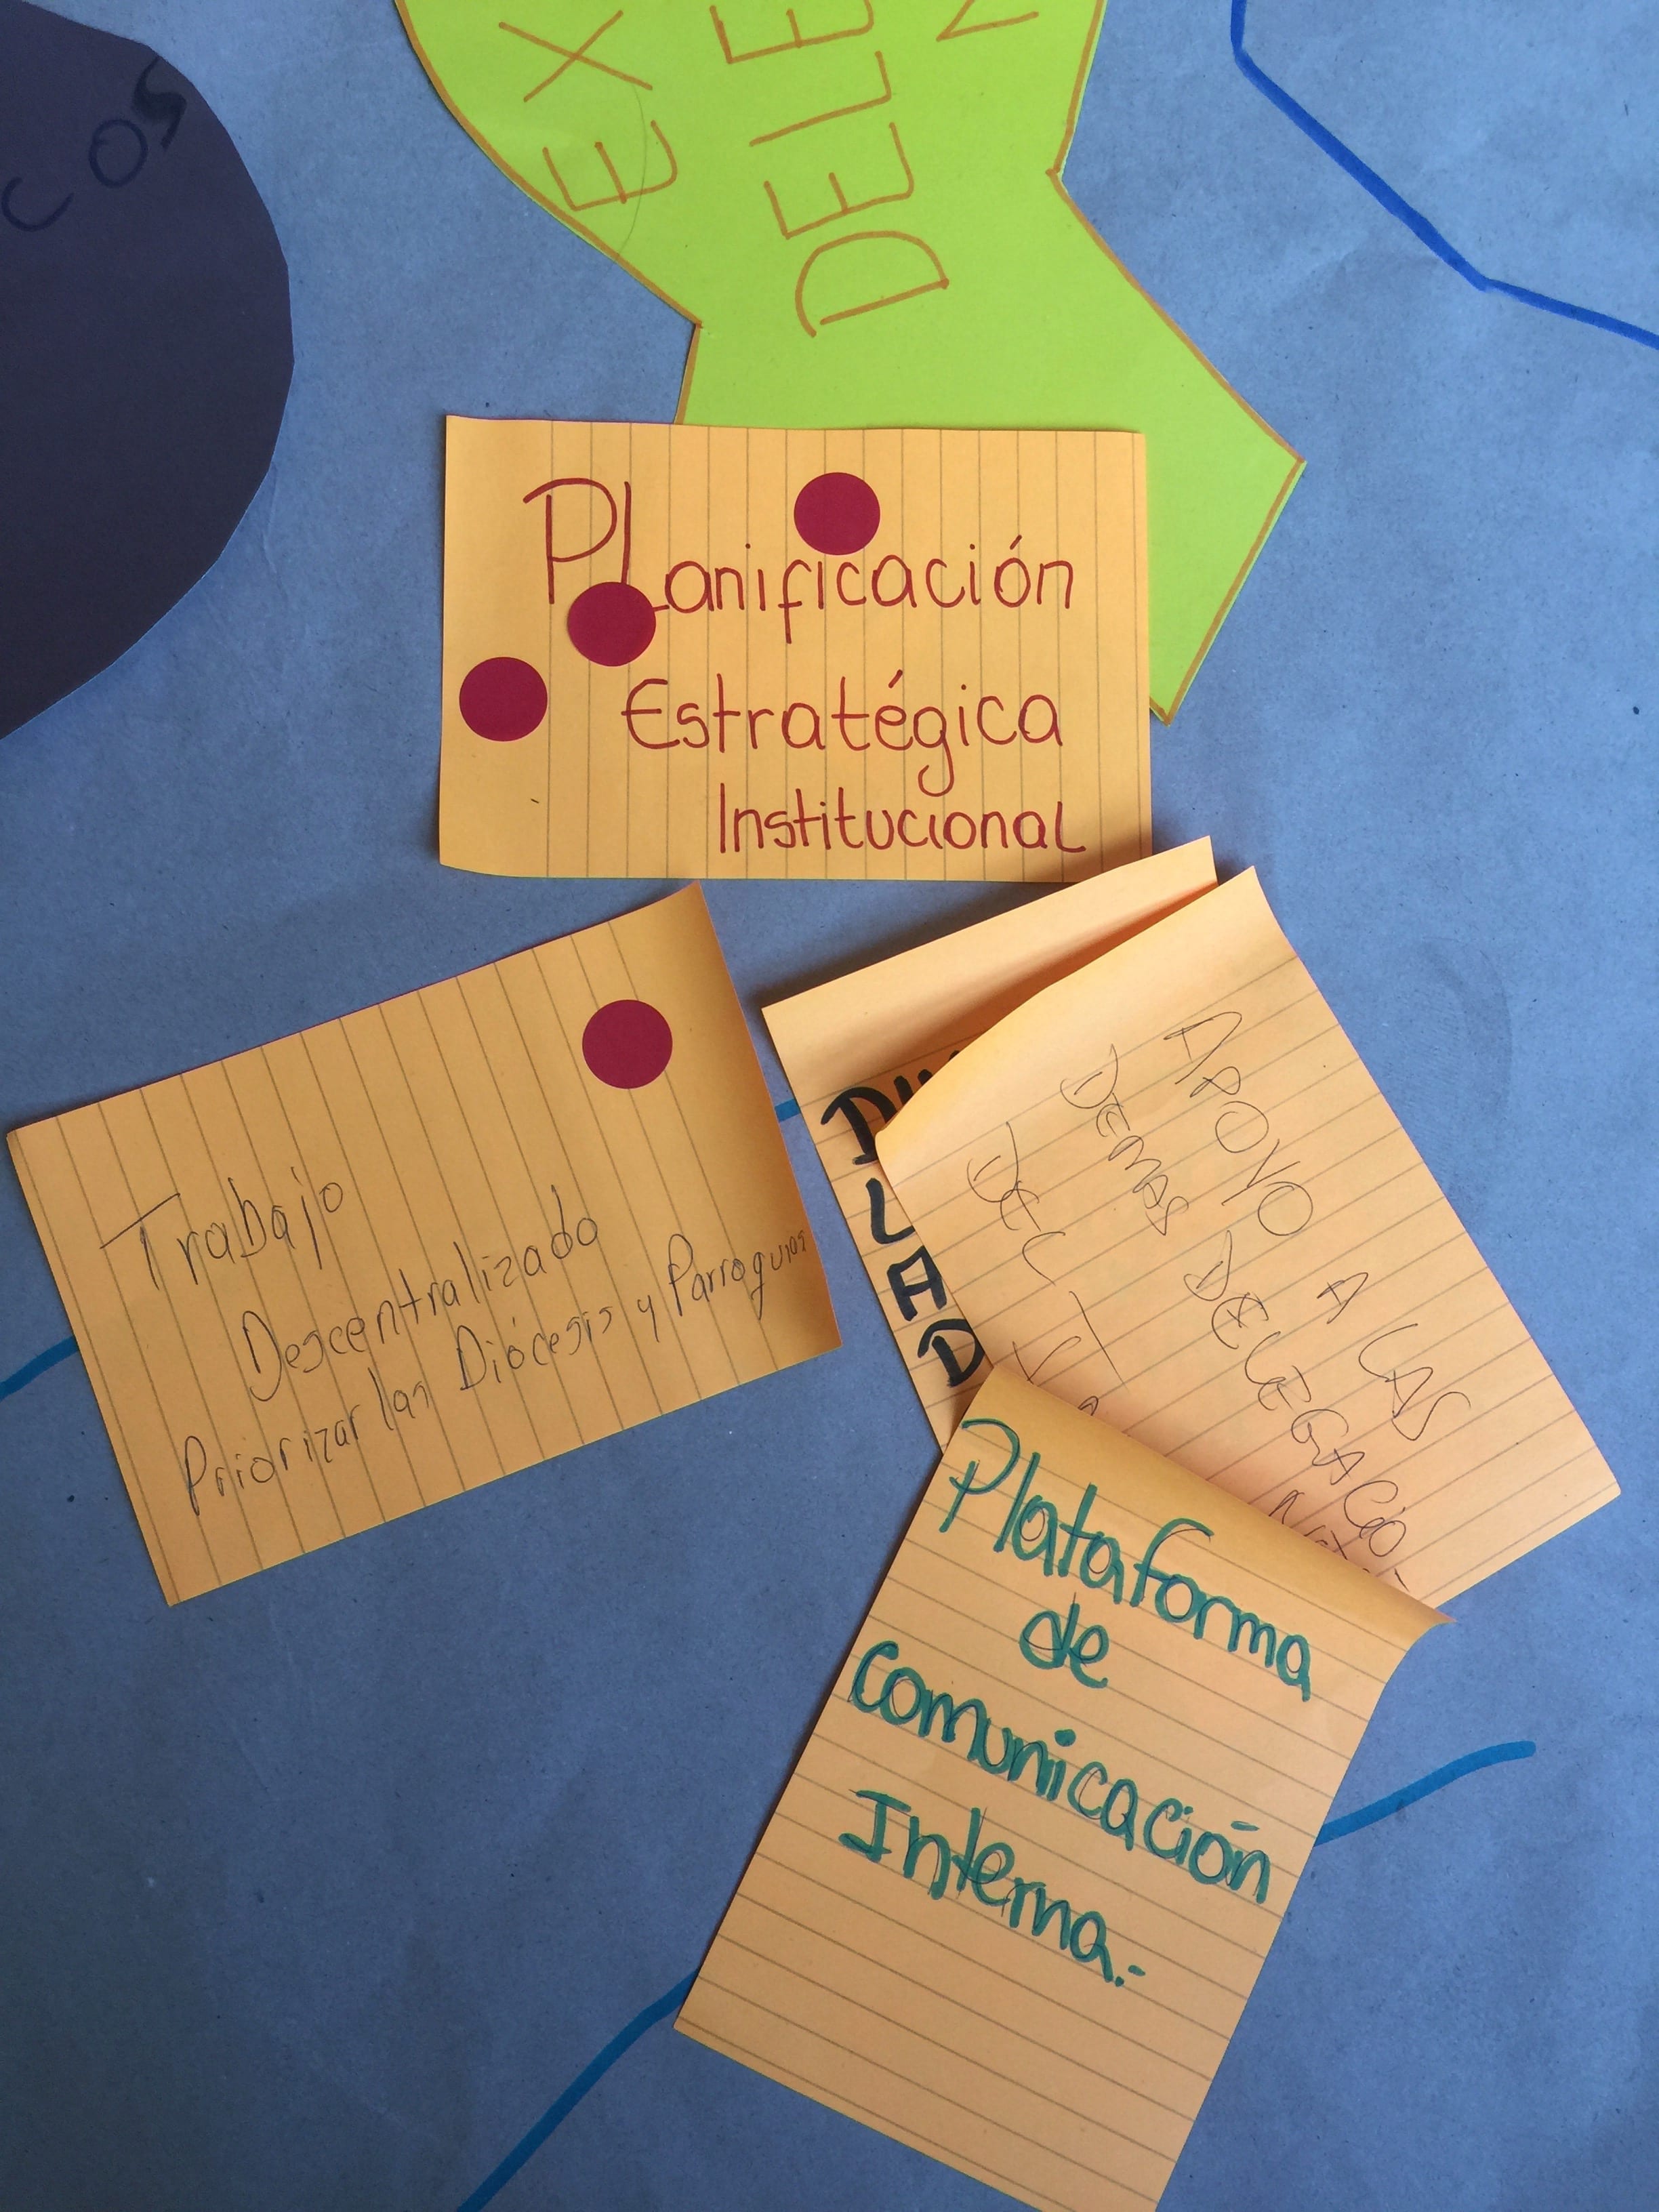 COS
EX
DELE
Planificación
Estratégica
Institucional
Trabajo
Descentralizado
Priorizar las Diócesis y Parroquias
LAD
APOYO A LAS
DEMAS DELEGACIO
DEL
Plataforma
de
comunicación
Interna.-